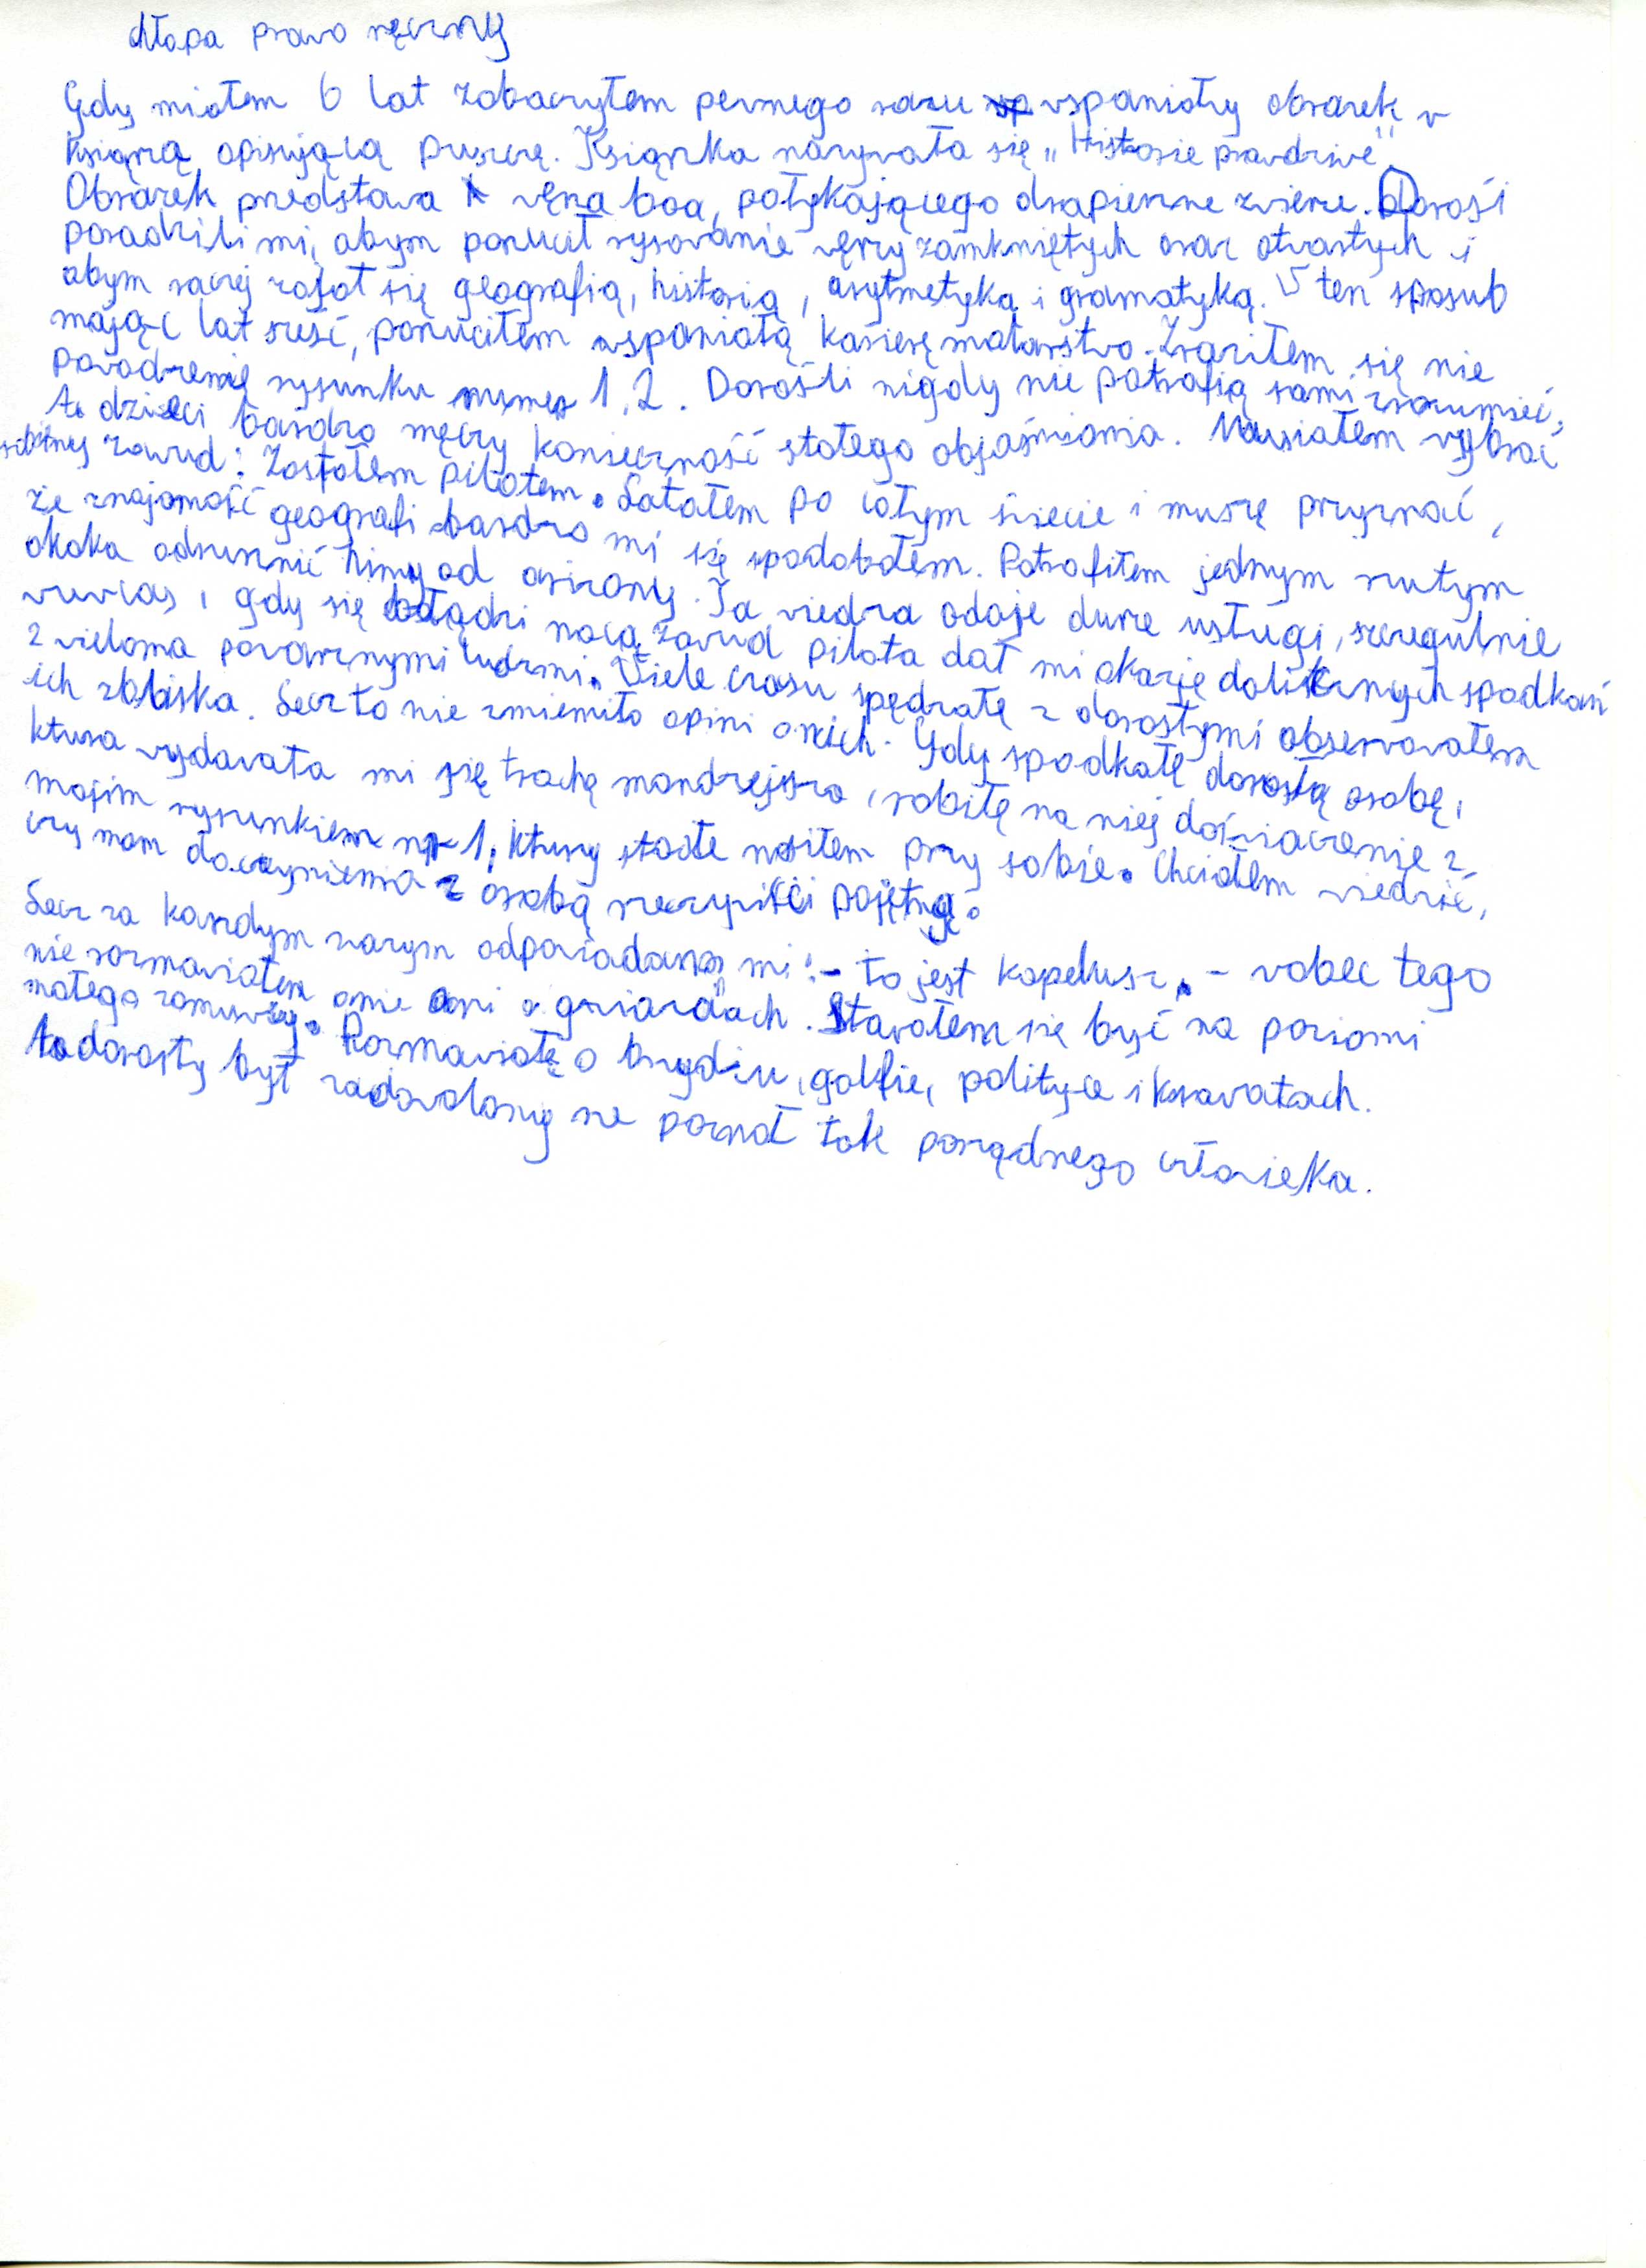 chłopa prawo ręczny
Gdy miałem 6 lat zobaczyłem pewnego razu wspaniały obrazek w
książcą opisującą puszczę. Książka nazywała się „Historie prawdziwe".
Obrazek predstawa węża boa, połykającego drapierzne zwierze. Dorośi
poradzili mi, abym porzucił rysowanie węrzy zamkniętych oraz otwartych i
abym raczej zajoł się geografią, historią, arytmetyką i gramatyką. W ten sposub
mając lat sześć, porzuciłem wspaniałą karierę malarstwo. Zraziłem się nie
powodzenię rysunku numer 1, 2. Dorośli nigdy nie potrafią sami zrozumieć,
to dzieci bardzo męczy konieczność stałego objaśniania. Musiałem wybrać
zawud: Zostałem pilotem. Latałem po całym świecie i muszę przyznać,
że znajomość geografi bardzo mi się spodobałem. Potrafiłem jednym rzutym
okoka odrusznić hiny od arizony. Ta wiedza odaje durze usługi, szczegulnie
wuwczas, gdy się błądzi nocą zawud pilota dał mi okazję do licznych spodkań
z wieloma poważnymi ludzmi. Wiele czasu spędzałę z dorosłymi obserwowałem
ich zbliska. Lecz to nie zmieniło opini o nich. Gdy spodkałę dorosłą osobę,
ktura wydawała mi się trochę mondrejsza, robiłę na niej doświaczenie z
mojim rysunkiem nr 1, ktury stale nosiłem przy sobie. Chciałem wiedzić,
czy mam doczynienia z osobą rzeczywiści pojętną.
Lecz za kazdym razym odpowiadano mi: - to jest kapelusz. - wobec tego
nie rozmawiałem o nie ani o gwiazdach. Starałem się być na poziomi
małego rozmuwcy. Rozmawiałę o brydżu, golfie, polityce i krawatach.
to dorosły był zadowolony że poznał tak porządnego człowieka.